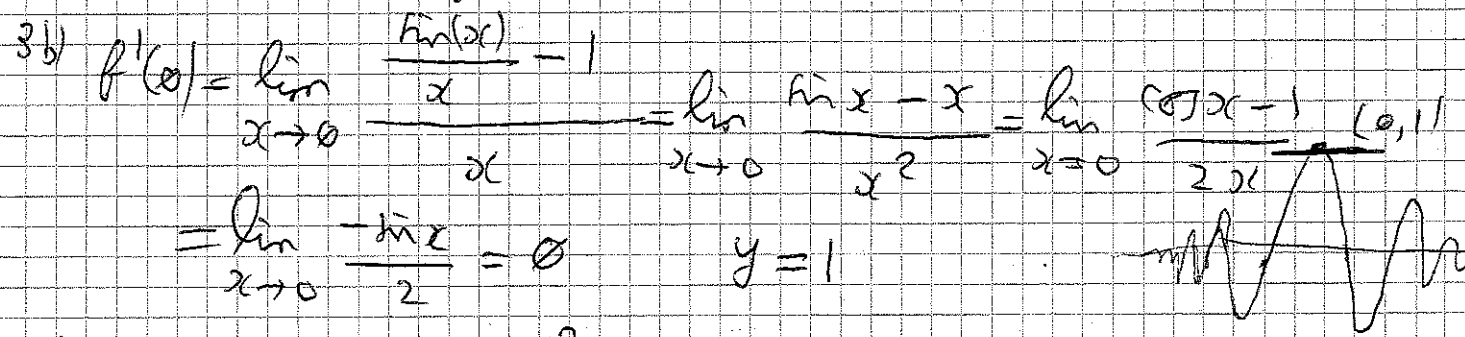 3b) f'(0) = lim x→0 (sin(x)/x - 1)/x = lim x→0 (sin x - x)/x² = lim x→0 (cos x - 1)/2x (0,1)
= lim x→0 (-sin x)/2 = 0 y = 1